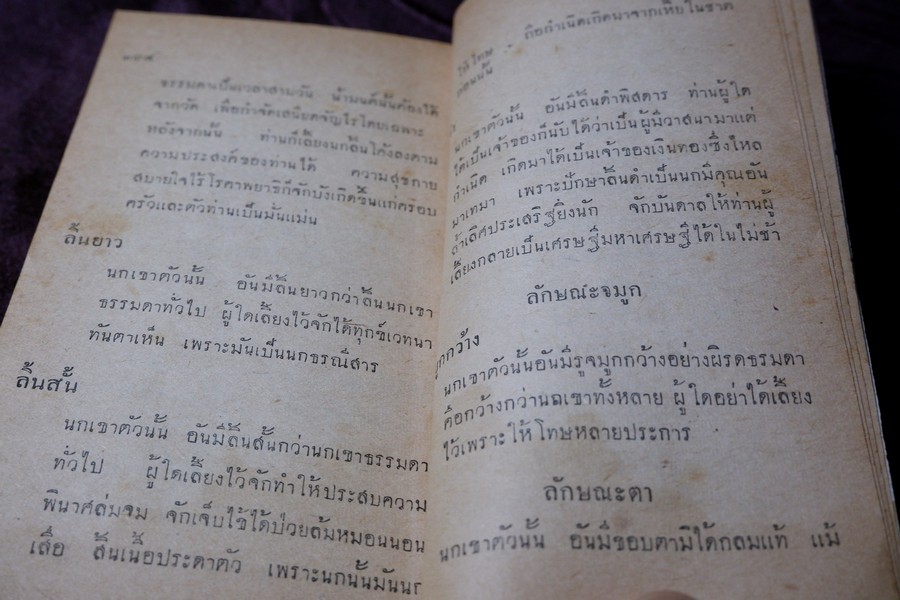 ธรรมดาเป็นเวลาสามวัน น้ำมนต์นั้นต้องได้
จากวัด เพื่อกำจัดเสนียดจัญไรโดยเฉพาะ
หลังจากนั้น ท่านก็เลี้ยงนกลิ้นโค้งลงตาม
ความประสงค์ของท่านได้ ความสุขกาย
สบายใจไร้โรคาพยาธิก็จักบังเกิดขึ้นแก่ครอบ
ครัวและตัวท่านเป็นมั่นแม่น
ลิ้นยาว
นกเขาตัวนั้น อันมีลิ้นยาวกว่าลิ้นนกเขา
ธรรมดาทั่วไป ผู้ใดเลี้ยงไว้จักได้ทุกข์เวทนา
ทันตาเห็น เพราะมันเป็นนกธรณีสาร
ลิ้นสั้น
นกเขาตัวนั้น อันมีลิ้นสั้นกว่านกเขาธรรมดา
ทั่วไป ผู้ใดเลี้ยงไว้จักทำให้ประสบความ
พินาศล่มจม จักเจ็บไข้ได้ป่วยล้มหมอนนอน
เสื่อ สิ้นเนื้อประดาตัว เพราะนกนั้นมัน
ถือกำเนิดเกิดมาจากเหี้ยในชาติ
ให้โทษ
ตอนนั้น
นกเขาตัวนั้น อันมีลิ้นดำพิสดาร ท่านผู้ใด
ได้เป็นเจ้าของก็นับได้ว่าเป็นผู้มีวาสนามาแต่
กำเนิด เกิดมาได้เป็นเจ้าของเงินทองซึ่งไหล
มาเทมา เพราะปักษาลิ้นดำเป็นนกมีคุณอัน
ล้ำเลิศประเสริฐยิ่งนัก จักบันดาลให้ท่านผู้
เลี้ยงกลายเป็นเศรษฐีมหาเศรษฐีได้ในไม่ช้า
ลักษณะจมูก
กว้าง
นกเขาตัวนั้นอันมีรูจมูกกว้างอย่างผิดธรรมดา
คือกว้างกว่านกเขาทั้งหลาย ผู้ใดอย่าได้เลี้ยง
ไว้เพราะให้โทษหลายประการ
ลักษณะตา
นกเขาตัวนั้น อันมีขอบตามิได้กลมแท้ แม้